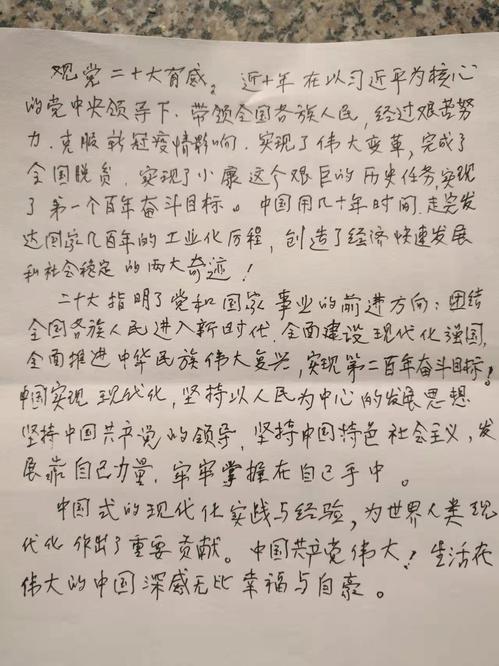 观党二十大有感。近十年在以习近平为核心
的党中央领导下.带领全国各族人民,经过艰苦努
力.克服新冠疫情影响.实现了伟大变革,完成了
全国脱贫.实现了小康这个艰巨的历史任务,实现
了第一个百年奋斗目标。中国用几十年时间.走完发
达国家几百年的工业化历程,创造了经济快速发展
和社会稳定的两大奇迹!
二十大指明了党和国家事业的前进方向:团结
全国各族人民进入新时代.全面建设现代化强国,
全面推进中华民族伟大复兴,实现第二百年奋斗目标!
中国实现现代化,坚持以人民为中心的发展思想.
坚持中国共产党的领导,坚持中国特色社会主义,发
展靠自己力量.牢牢掌握在自己手中。
中国式的现代化实践与经验,为世界人类现
代化作出了重要贡献。中国共产党伟大!生活在
伟大的中国深感无比幸福与自豪。